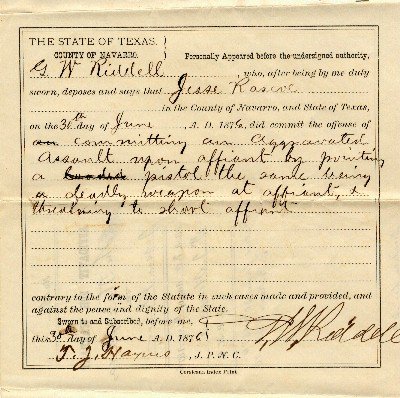 THE STATE OF TEXAS,
COUNTY OF NAVARRO.
Personally Appeared before the undersigned authority,
G W Riddell, who, after being by me duly
sworn, deposes and says that Jesse Rascoe
in the County of Navarro, and State of Texas,
on the 3th day of June A. D. 1876, did commit the offense of
an committing an Aggravated
Assault upon affiant by pointing
a loaded pistol the same being
a deadly weapon at affiant, &
threatning to shoot affiant
contrary to the form of the Statute in such cases made and provided, and
against the peace and dignity of the State.
Sworn to and Subscribed, before me,
this 3th day of June A. D. 1876
G W Riddell
T. J. Haynes, J. P. N. C.
Corsicana Index Print